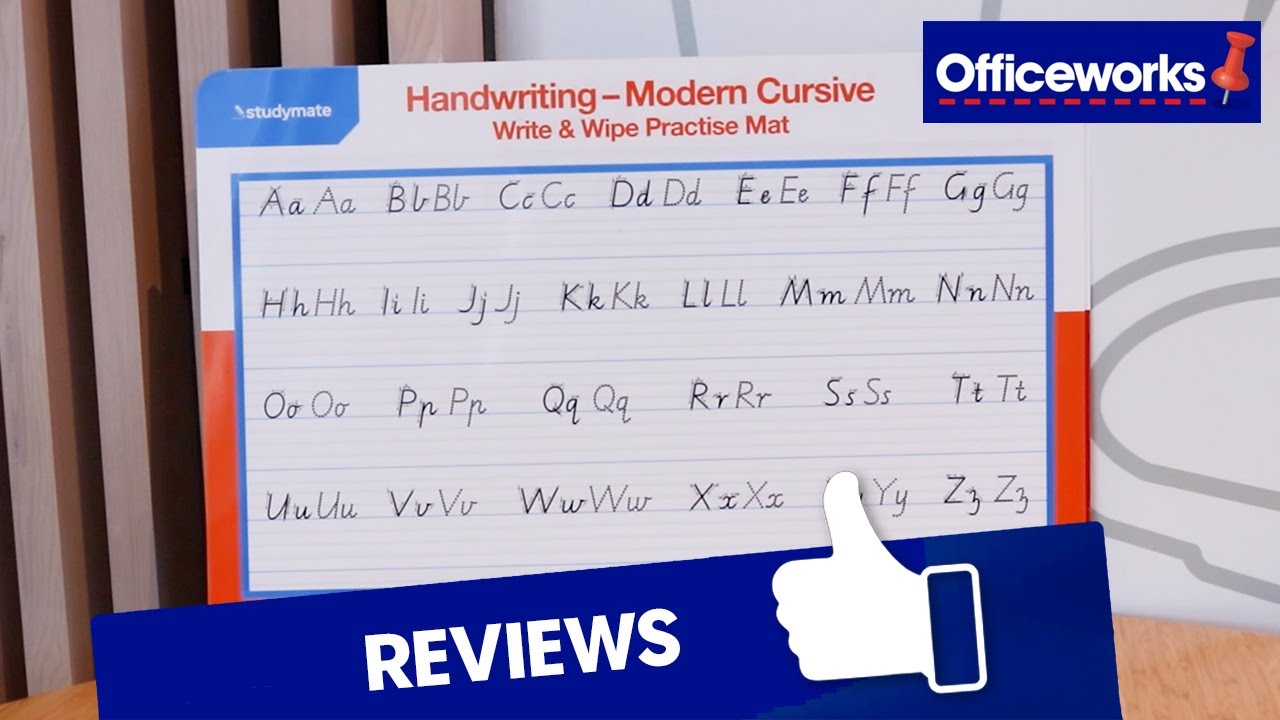 Officeworks
studymate
Handwriting – Modern Cursive
Write & Wipe Practise Mat
Aa Aa Bb Bb Cc Cc Dd Dd Ee Ee Ff Ff Gg Gg
Hh Hh Ii Ii Jj Jj Kk Kk Ll Ll Mm Mm Nn Nn
Oo Oo Pp Pp Qq Qq Rr Rr Ss Ss Tt Tt
Uu Uu Vv Vv Ww Ww Xx Xx Yy Zz Zz
REVIEWS